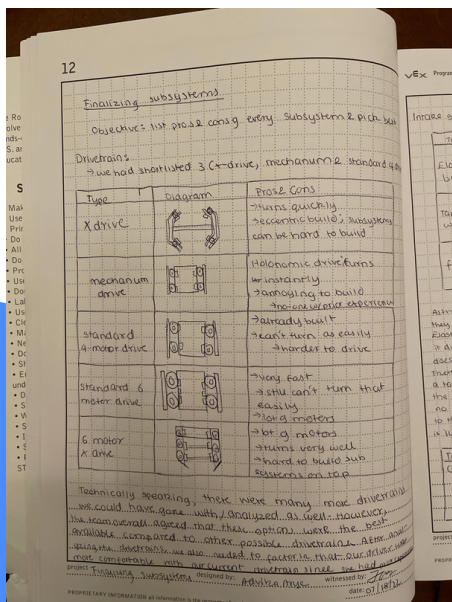 12
VEX Program
Finalizing subsystems
Objective: list pros & cons of every subsystem & pick best
Drivetrain:
→ we had shortlisted 3 (x-drive, mechanum & standard 4
Type
Diagram
Pros & Cons
X drive
→ turns quickly
→ eccentric build; subsystems
can be hard to build
mechanum
drive
Holonomic drive/turns
instantly
→ annoying to build
→ no-one w/ prior experience
standard
4-motor drive
→ already built
→ can't turn as easily
→ harder to drive
standard 6
motor drive
→ very fast
→ still can't turn that
easily
→ lot of motors
6 motor
x drive
→ lot of motors
→ turns very well
→ hard to build sub
systems on top
Technically speaking, there were many more drivetrains
we could have gone with/analyzed as well. However,
the team overall agreed that these options were the best
available compared to other possible drivetrains. After
the drivetrains, we also needed to factor in that our driver
more comfortable with our current drivetrain since she had
project Finalizing Subsystems designed by: witnessed by:
date: 07/18/22
PROPRIETARY INFORMATION all information is the
Intake